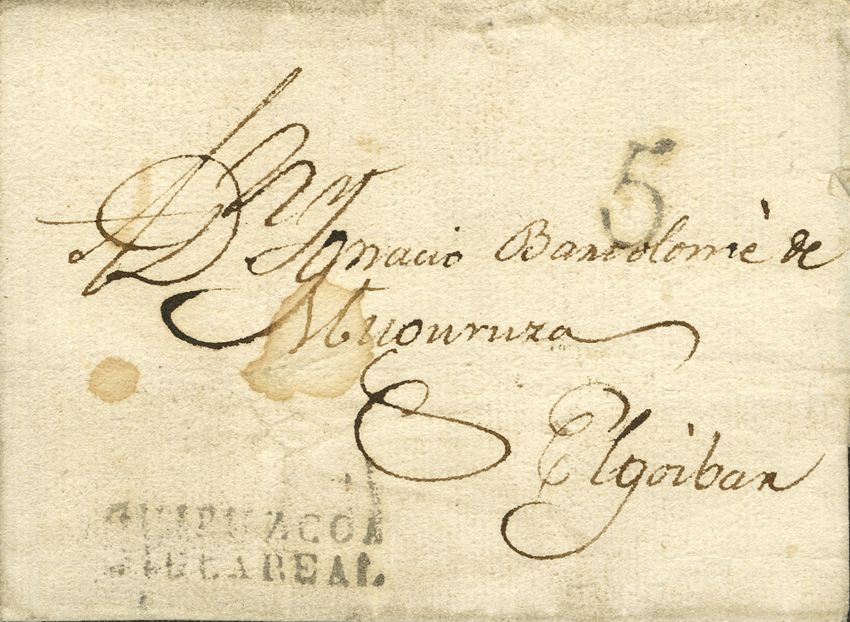 5
A D.n Ignacio Bartolomè de
Muguruza
Elgoibar
GUIPUZCOA
VILLAREAL